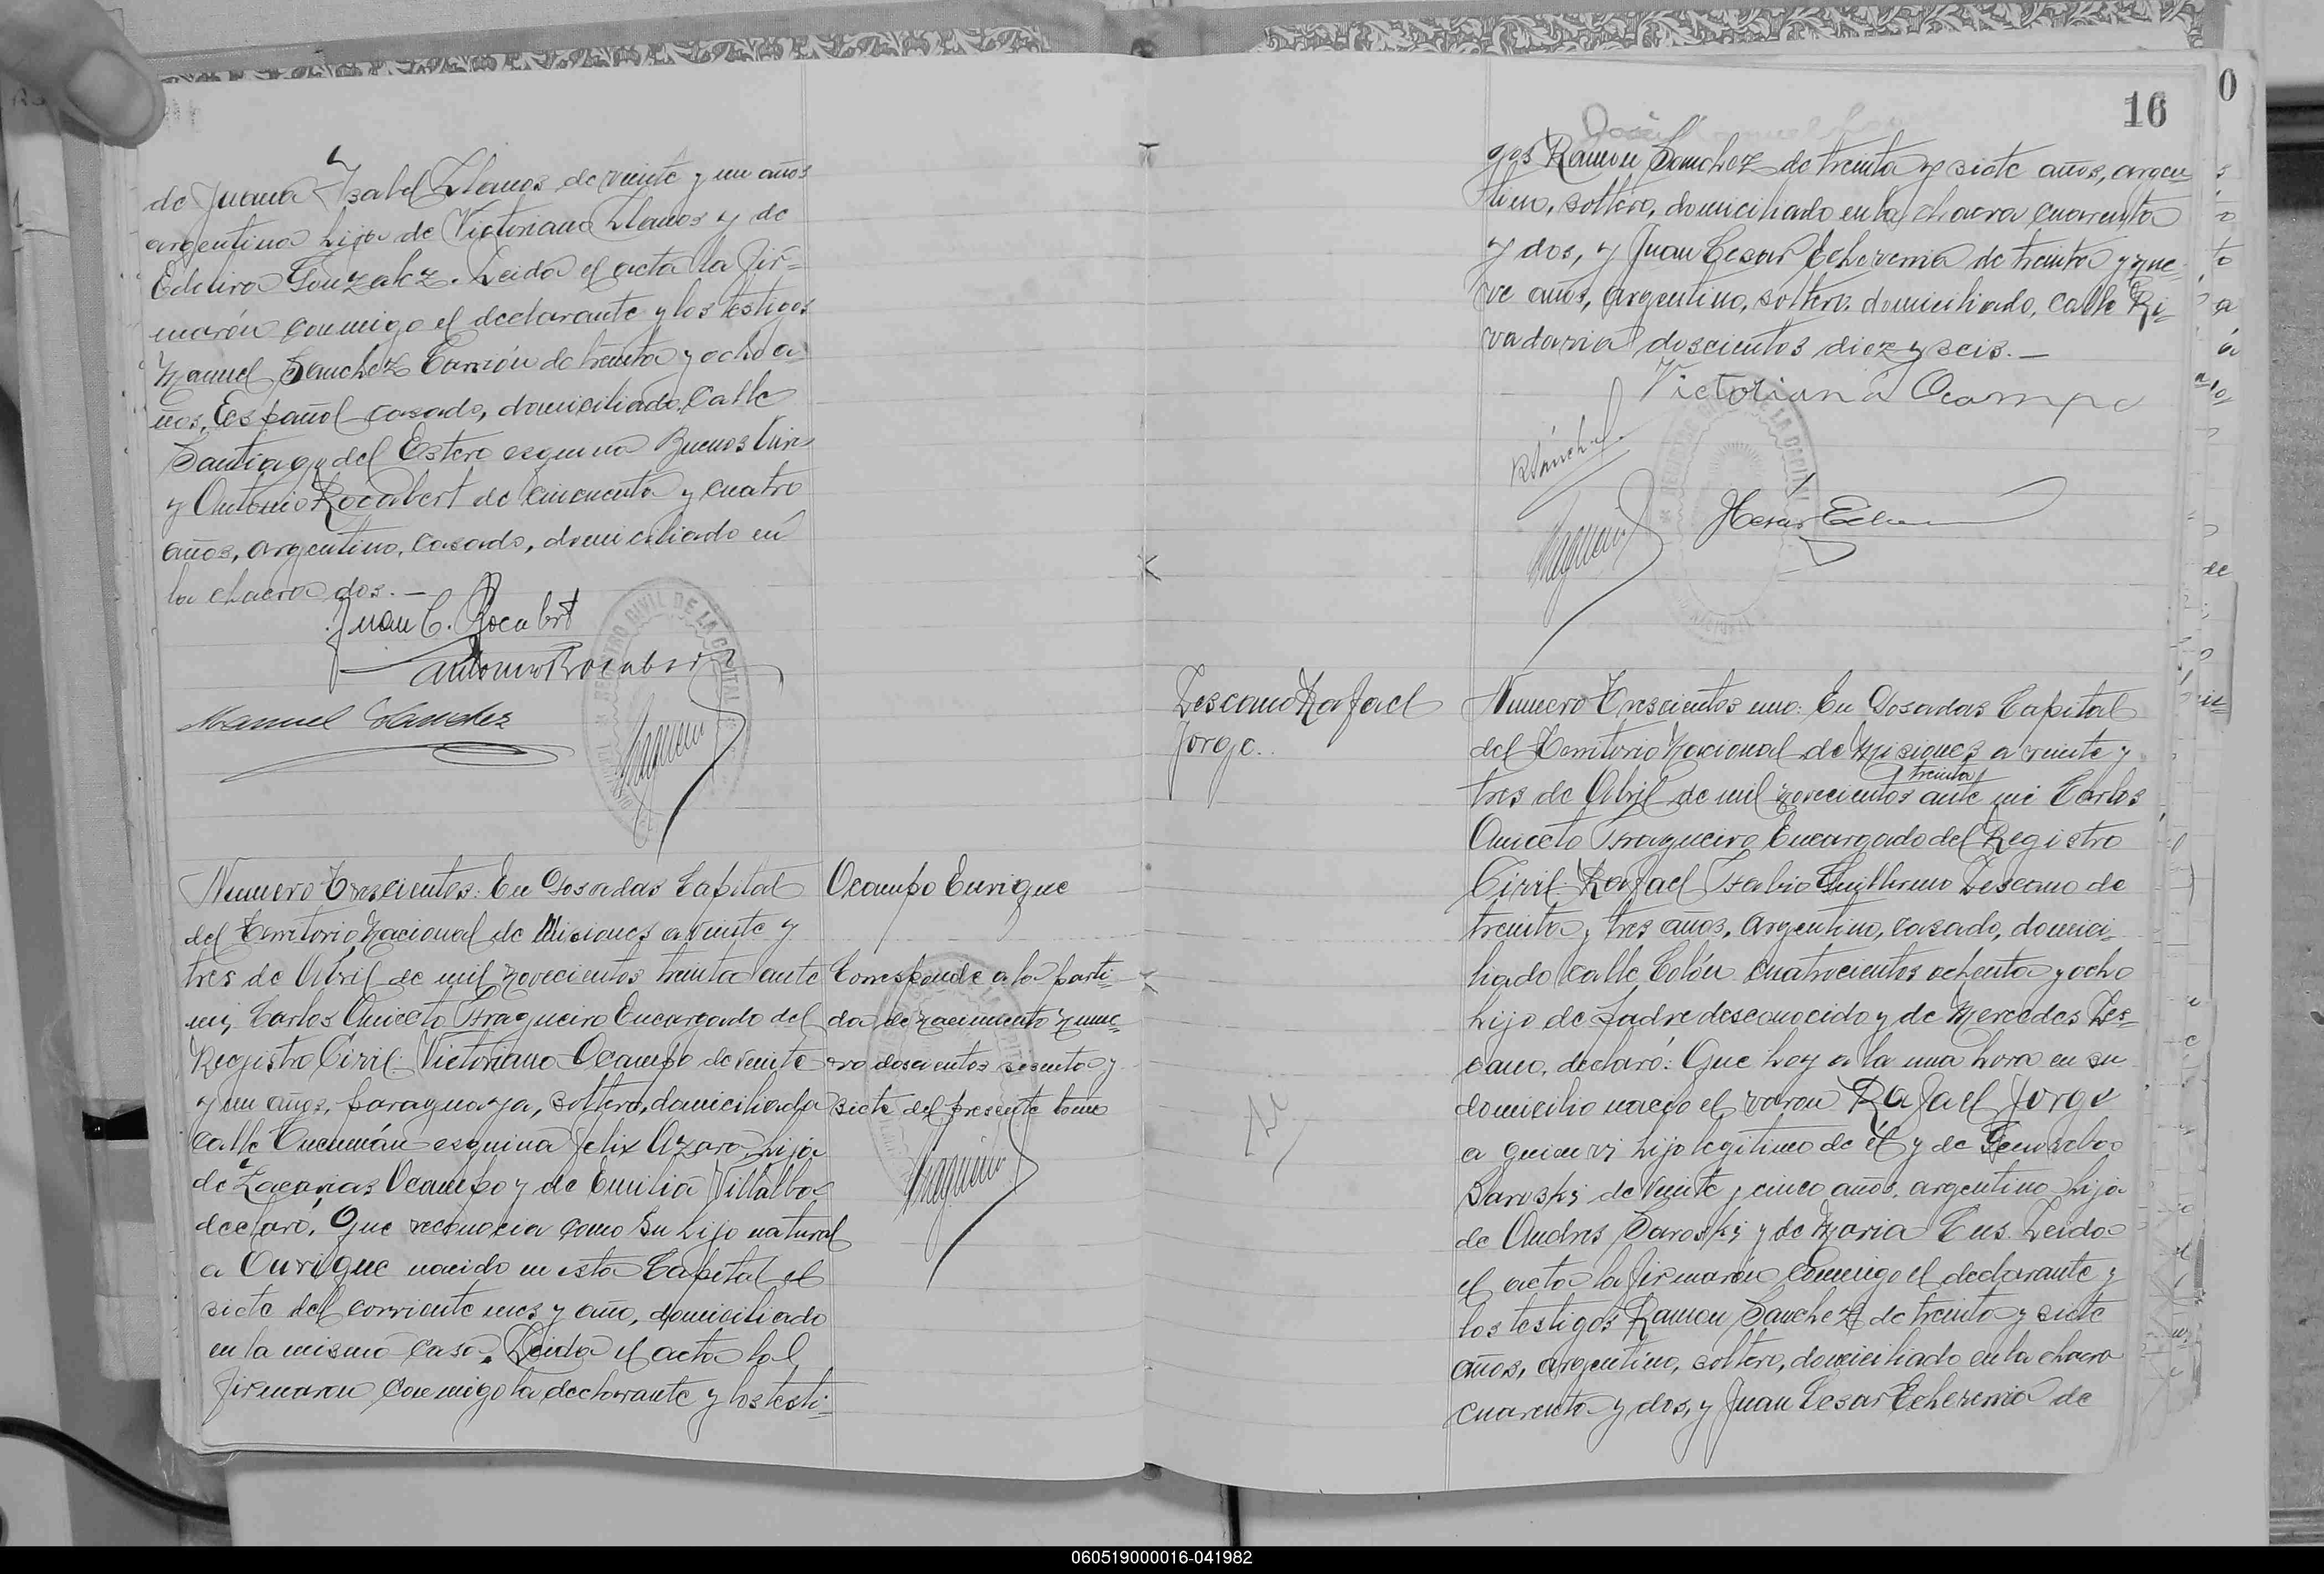 de Juana Isabel Llanos de veinte y un años
argentina hija de Victoriano Llanos y de
Edelira Gonzalez. Leida el acta la fir=
marón conmigo el declarante y los testigos
Manuel Sanchez Carrión de treinta y ocho a=
ños, Español casado, domiciliado, Calle
Santiago del Estero esquina Buenos Aires
y Antonio Rocabert de cincuenta y cuatro
años, argentino, casado, domiciliado en
la chacra dos.—
Juan C. Rocabert
Antonio Rocabert
Manuel Sanchez
REGISTRO CIVIL DE LA CAPITAL
Numero Trescientos: En Posadas Capital
del Territorio Nacional de Misiones a veinte y
tres de Abril de mil novecientos treinta ante
mi, Carlos Aniceto Fragueiro Encargado del
Registro Civil: Victoriana Ocampo de veinte
y un años, paraguaya, soltera, domiciliada
calle Tucumán esquina Felix Azara, hija
de Zacarias Ocampo y de Emilia Villalba
declaró: Que reconocia como su hijo natural
a Enrique nacido en esta Capital el
siete del corriente mes y año, domiciliado
en la misma casa. Leida el acta la
firmaron conmigo la declarante y los testi=
Ocampo Enrique
Corresponde a la parti=
da de nacimiento nume=
ro doscientos sesenta y
siete del presente tomo
16
0
gos Ramon Sanchez de treinta y siete años, argen
tino, soltero, domiciliado en la chacra cuarenta
y dos, y Juan Cesar Echeverria de treinta y nue
ve años, argentino, soltero, domiciliado, calle Ri=
vadavia doscientos diez y seis.—
Victoriana Ocampo
RSánchez
Lescano Rafael
Jorge.
Numero Trescientos uno: En Posadas Capital
del Territorio Nacional de Misiones a veinte y
treinta
tres de Abril de mil novecientos ante mi Carlos
Aniceto Fragueiro Encargado del Registro
Civil: Rafael Fabio Guillermo Lescano de
treinta y tres años, argentino, casado, domici=
liado calle Colón cuatrocientos ochenta y ocho
hijo de padre desconocido y de Mercedes Les=
cano, declaró: Que hoy a la una hora en su
domicilio nació el varon Rafael Jorge
a quien vi hijo legitimo de él y de
Saroski de veinte y cinco años, argentina hija
de Andres Saroski y de Maria Cus. Leida
el acta la firmaron conmigo el declarante y
los testigos Ramon Sanchez de treinta y siete
años, argentino, soltero, domiciliado en la chacra
cuarenta y dos, y Juan Cesar Echeverria de
060519000016-041982